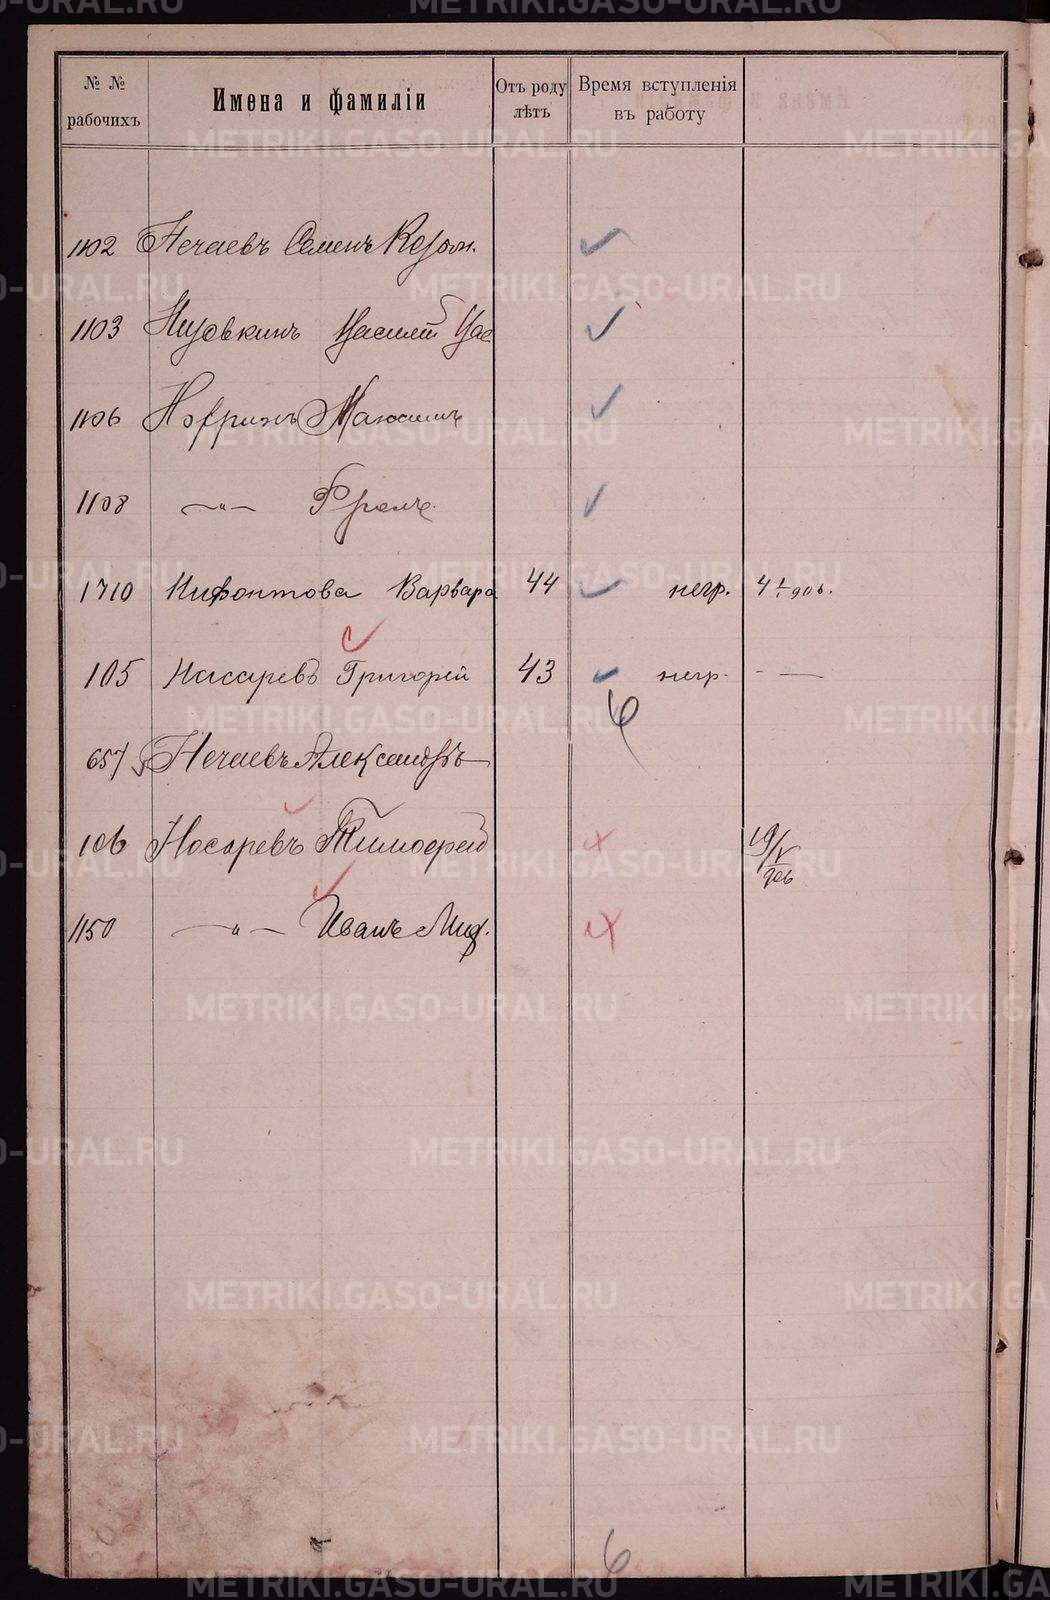 № № рабочихъ
Имена и фамиліи
Отъ роду лѣтъ
Время вступленія въ работу
1102 Нечаевъ Семенъ
1103 Василий Вас.
1106 Максимъ
1108 —"— Фролъ
1710 Нифонтова Варвара 44 негр. 4 1/I 906.
105 Насаревъ Григорей 43 негр. - —
6
657 Нечаевъ Александръ
106 Носаревъ Тимофей 19/V 906
1150 —"— Иванъ
6
METRIKI.GASO-URAL.RU